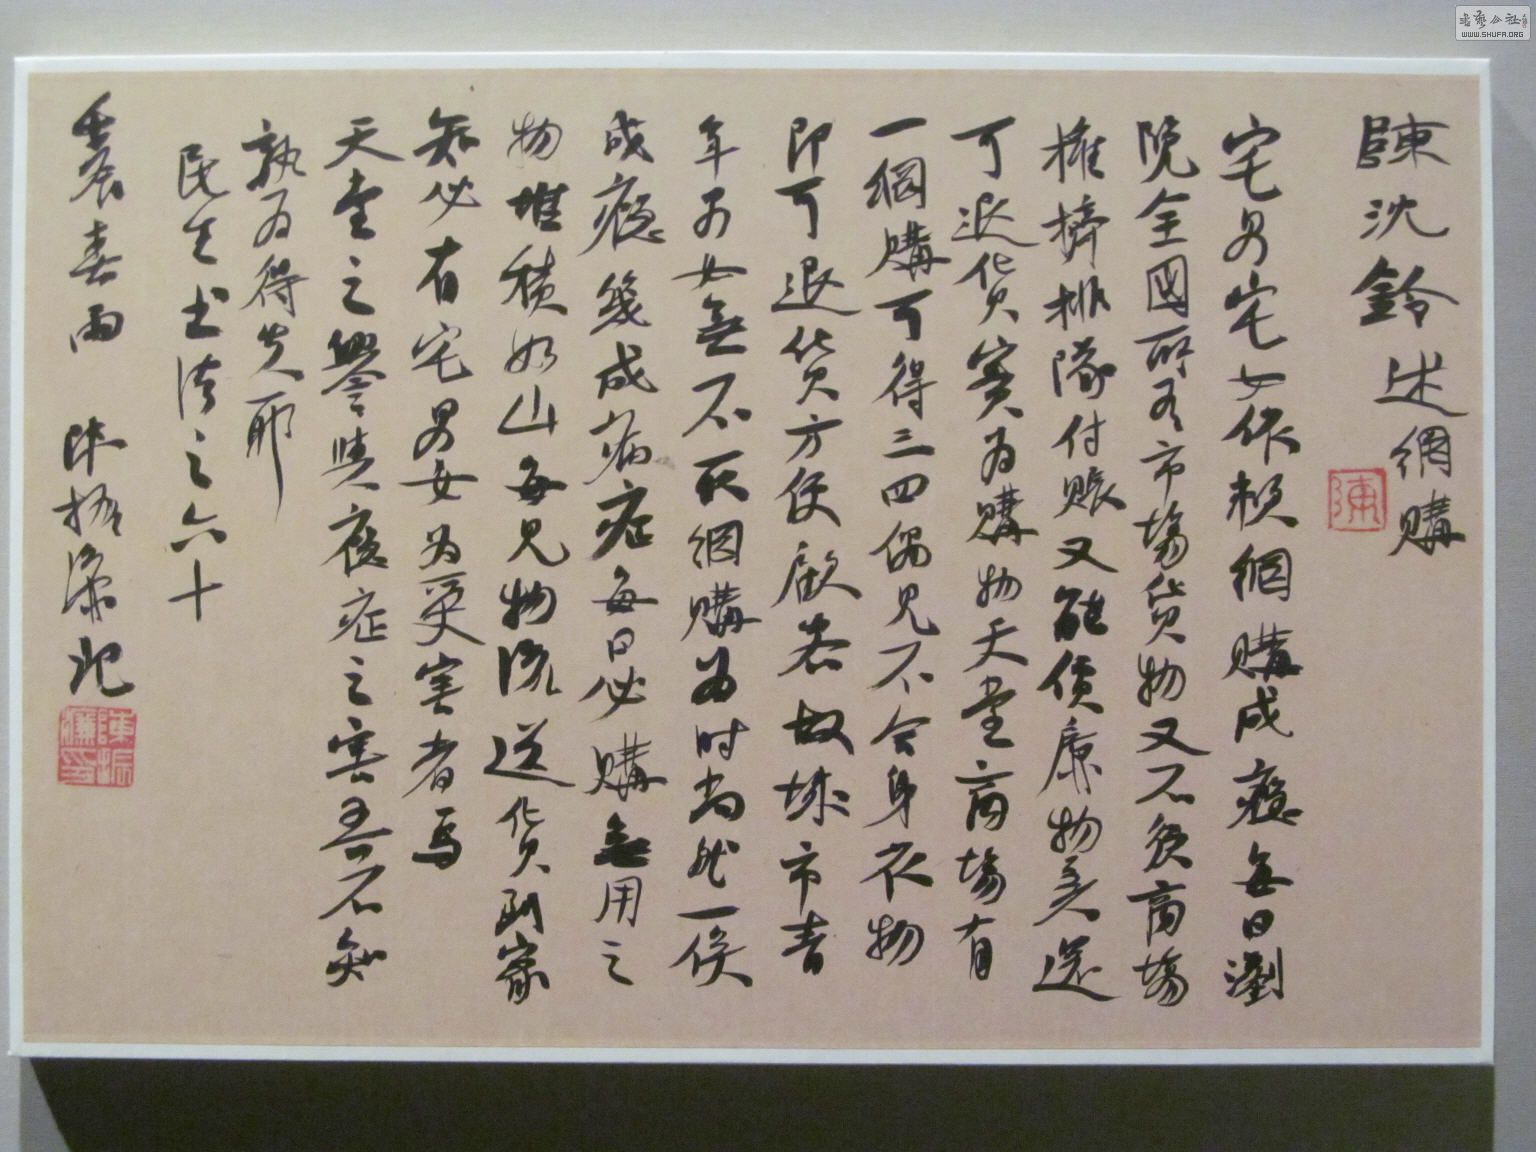 陳沈鈴述網購
宅男宅女依賴網購成癮每日瀏
覽全國所有市場貨物又不須商場
擁擠排隊付賬又能價廉物美還
可退貨實為購物天堂商場有
一個購可得三四偶見不合身衣物
即可退貨方便顧客故城市青
年男女無不以網購為時尚然一侯
成癮幾成病症每日必購無用之
物堆積如山每見物流送貨到家
知必有宅男女為受害者焉
天堂之譽與癮症之害吾不知
孰為得失耶
民生書法之六十
壬辰春雨 陳振濂記
陳
陳振濂印
書藝公社
WWW.SHUFA.ORG